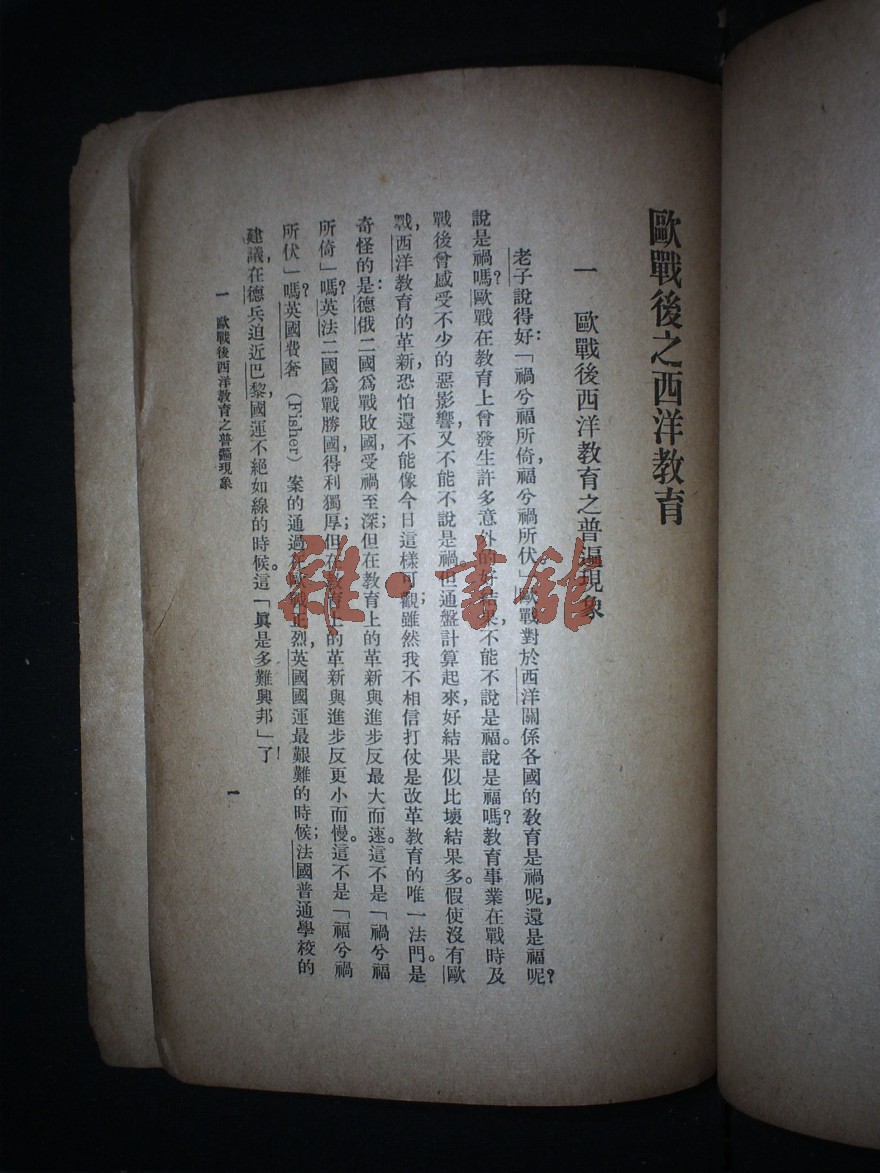 歐戰後之西洋教育
一　歐戰後西洋教育之普遍現象
老子說得好:「禍兮福所倚,福兮禍所伏」。歐戰對於西洋關係各國的教育是禍呢,還是福呢?
說是禍嗎?歐戰在教育上曾發生許多意外的好結果,不能不說是福。說是福嗎?教育事業在戰時及
戰後曾感受不少的惡影響,又不能不說是禍。但通盤計算起來,好結果似比壞結果多。假使沒有歐
戰,西洋教育的革新,恐怕還不能像今日這樣可觀;雖然我不相信打仗是改革教育的唯一法門。是
奇怪的是:德俄二國為戰敗國,受禍至深;但在教育上的革新與進步反最大而速。這不是「禍兮福
所倚」嗎?英法二國為戰勝國,得利獨厚;但在教育上的革新與進步反更小而慢。這不是「福兮禍
所伏」嗎?英國費奢(Fisher)案的通過在歐戰正烈,英國國運最艱難的時候;法國普通學校的
建議,在德兵迫近巴黎,國運不絕如線的時候。這「真是多難興邦」了!
一　歐戰後西洋教育之普遍現象
一
雜·書館